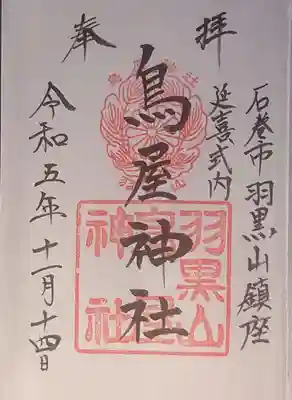 奉拝
石巻市羽黒山鎮座
延喜式内
鳥屋神社
令和五年十一月十四日
羽黒山
神社